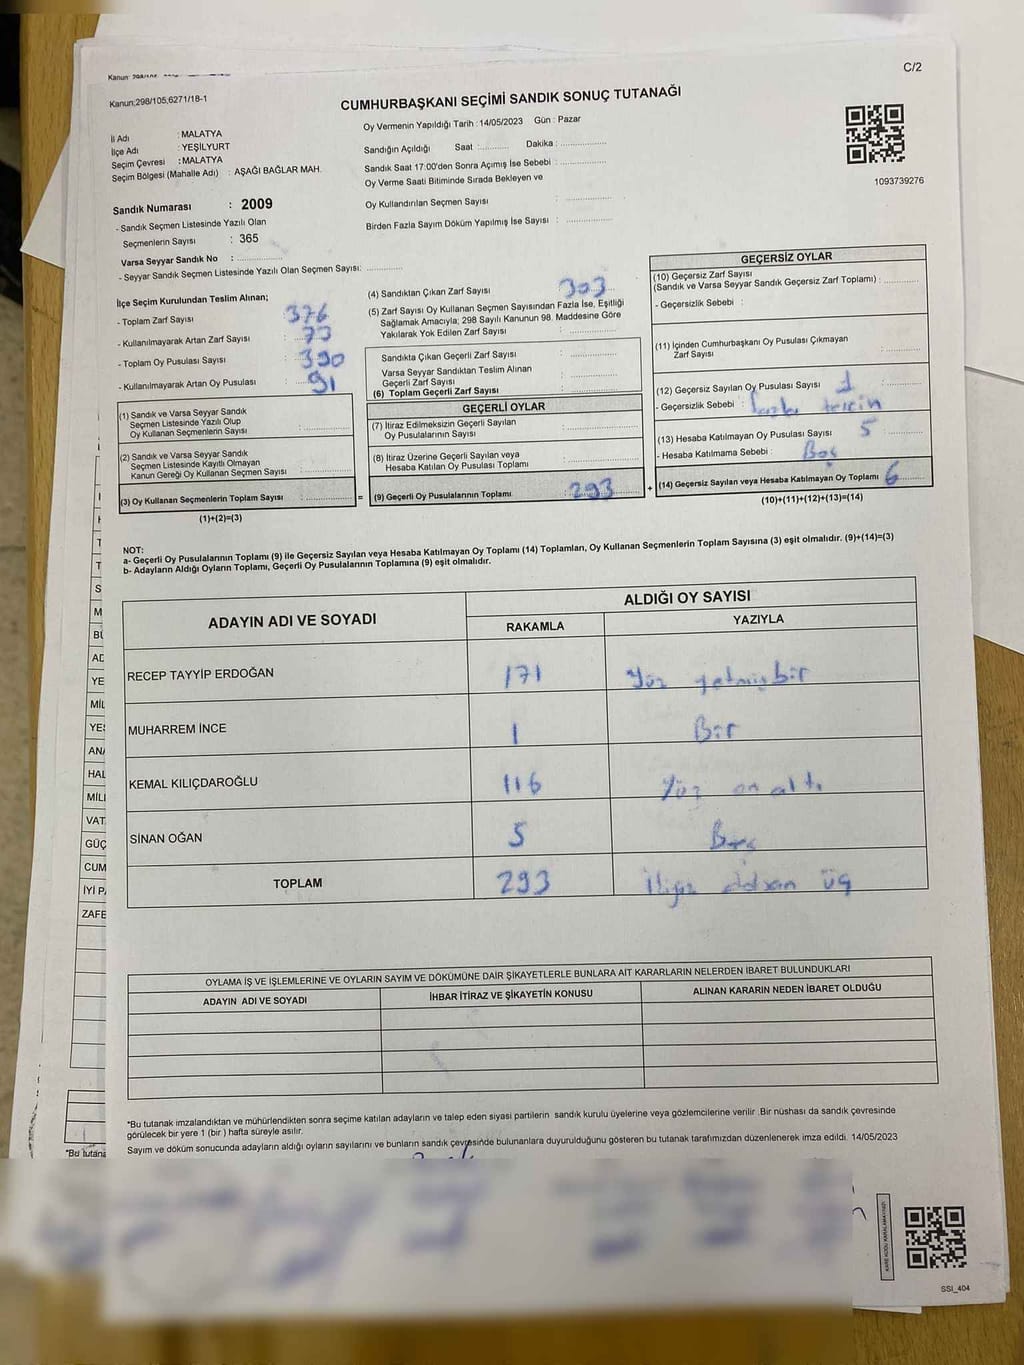 C/2
Kanun:298/105;6271/18-1
CUMHURBAŞKANI SEÇİMİ SANDIK SONUÇ TUTANAĞI
İl Adı : MALATYA
İlçe Adı : YEŞİLYURT
Seçim Çevresi : MALATYA
Seçim Bölgesi (Mahalle Adı) : AŞAĞI BAĞLAR MAH.
Oy Vermenin Yapıldığı Tarih : 14/05/2023 Gün : Pazar
Sandığın Açıldığı Saat :........... Dakika : ..................
Sandık Saat 17:00'den Sonra Açımış İse Sebebi : ..................
Oy Verme Saati Bitiminde Sırada Bekleyen ve
Oy Kullandırılan Seçmen Sayısı : ..................
Birden Fazla Sayım Döküm Yapılmış İse Sayısı : ..................
1093739276
Sandık Numarası : 2009
- Sandık Seçmen Listesinde Yazılı Olan
Seçmenlerin Sayısı : 365
Varsa Seyyar Sandık No : ..................
- Seyyar Sandık Seçmen Listesinde Yazılı Olan Seçmen Sayısı: ..............
İlçe Seçim Kurulundan Teslim Alınan;
- Toplam Zarf Sayısı : 376
- Kullanılmayarak Artan Zarf Sayısı : 73
- Toplam Oy Pusulası Sayısı : 390
- Kullanılmayarak Artan Oy Pusulası : 91
(1) Sandık ve Varsa Seyyar Sandık
Seçmen Listesinde Yazılı Olup
Oy Kullanan Seçmenlerin Sayısı : ..................
(2) Sandık ve Varsa Seyyar Sandık
Seçmen Listesinde Kayıtlı Olmayan
Kanun Gereği Oy Kullanan Seçmen Sayısı : ..................
(3) Oy Kullanan Seçmenlerin Toplam Sayısı : .................. =
(1)+(2)=(3)
(4) Sandıktan Çıkan Zarf Sayısı : 303
(5) Zarf Sayısı Oy Kullanan Seçmen Sayısından Fazla İse, Eşitliği
Sağlamak Amacıyla; 298 Sayılı Kanunun 98. Maddesine Göre
Yakılarak Yok Edilen Zarf Sayısı : ..................
Sandıkta Çıkan Geçerli Zarf Sayısı : ..................
Varsa Seyyar Sandıktan Teslim Alınan
Geçerli Zarf Sayısı : ..................
(6) Toplam Geçerli Zarf Sayısı : ..................
GEÇERLİ OYLAR
(7) İtiraz Edilmeksizin Geçerli Sayılan
Oy Pusulalarının Sayısı : ..................
(8) İtiraz Üzerine Geçerli Sayılan veya
Hesaba Katılan Oy Pusulası Toplamı : ..................
(9) Geçerli Oy Pusulalarının Toplamı : 293 +
GEÇERSİZ OYLAR
(10) Geçersiz Zarf Sayısı
(Sandık ve Varsa Seyyar Sandık Geçersiz Zarf Toplamı) : ..............
- Geçersizlik Sebebi :
(11) İçinden Cumhurbaşkanı Oy Pusulası Çıkmayan
Zarf Sayısı : ..............
(12) Geçersiz Sayılan Oy Pusulası Sayısı : 1
- Geçersizlik Sebebi : fazla tercih
(13) Hesaba Katılmayan Oy Pusulası Sayısı : 5
- Hesaba Katılmama Sebebi : Boş
(14) Geçersiz Sayılan veya Hesaba Katılmayan Oy Toplamı : 6
(10)+(11)+(12)+(13)=(14)
NOT:
a- Geçerli Oy Pusulalarının Toplamı (9) ile Geçersiz Sayılan veya Hesaba Katılmayan Oy Toplamı (14) Toplamları, Oy Kullanan Seçmenlerin Toplam Sayısına (3) eşit olmalıdır. (9)+(14)=(3)
b- Adayların Aldığı Oyların Toplamı, Geçerli Oy Pusulalarının Toplamına (9) eşit olmalıdır.
ADAYIN ADI VE SOYADI
ALDIĞI OY SAYISI
RAKAMLA YAZIYLA
RECEP TAYYİP ERDOĞAN 171 Yüz yetmişbir
MUHARREM İNCE 1 Bir
KEMAL KILIÇDAROĞLU 116 Yüz on altı
SİNAN OĞAN 5 Beş
TOPLAM 293 İkiyüz doksan üç
OYLAMA İŞ VE İŞLEMLERİNE VE OYLARIN SAYIM VE DÖKÜMÜNE DAİR ŞİKAYETLERLE BUNLARA AİT KARARLARIN NELERDEN İBARET BULUNDUKLARI
ADAYIN ADI VE SOYADI İHBAR İTİRAZ VE ŞİKAYETİN KONUSU ALINAN KARARIN NEDEN İBARET OLDUĞU
*Bu tutanak imzalandıktan ve mühürlendikten sonra seçime katılan adayların ve talep eden siyasi partilerin sandık kurulu üyelerine veya gözlemcilerine verilir .Bir nüshası da sandık çevresinde
görülecek bir yere 1 (bir ) hafta süreyle asılır.
Sayım ve döküm sonucunda adayların aldığı oyların sayılarını ve bunların sandık çevresinde bulunanlara duyurulduğunu gösteren bu tutanak tarafımızdan düzenlenerek imza edildi. 14/05/2023
*Bu tutana
KARE KODU KARALAMAYINIZ!
SSI_404